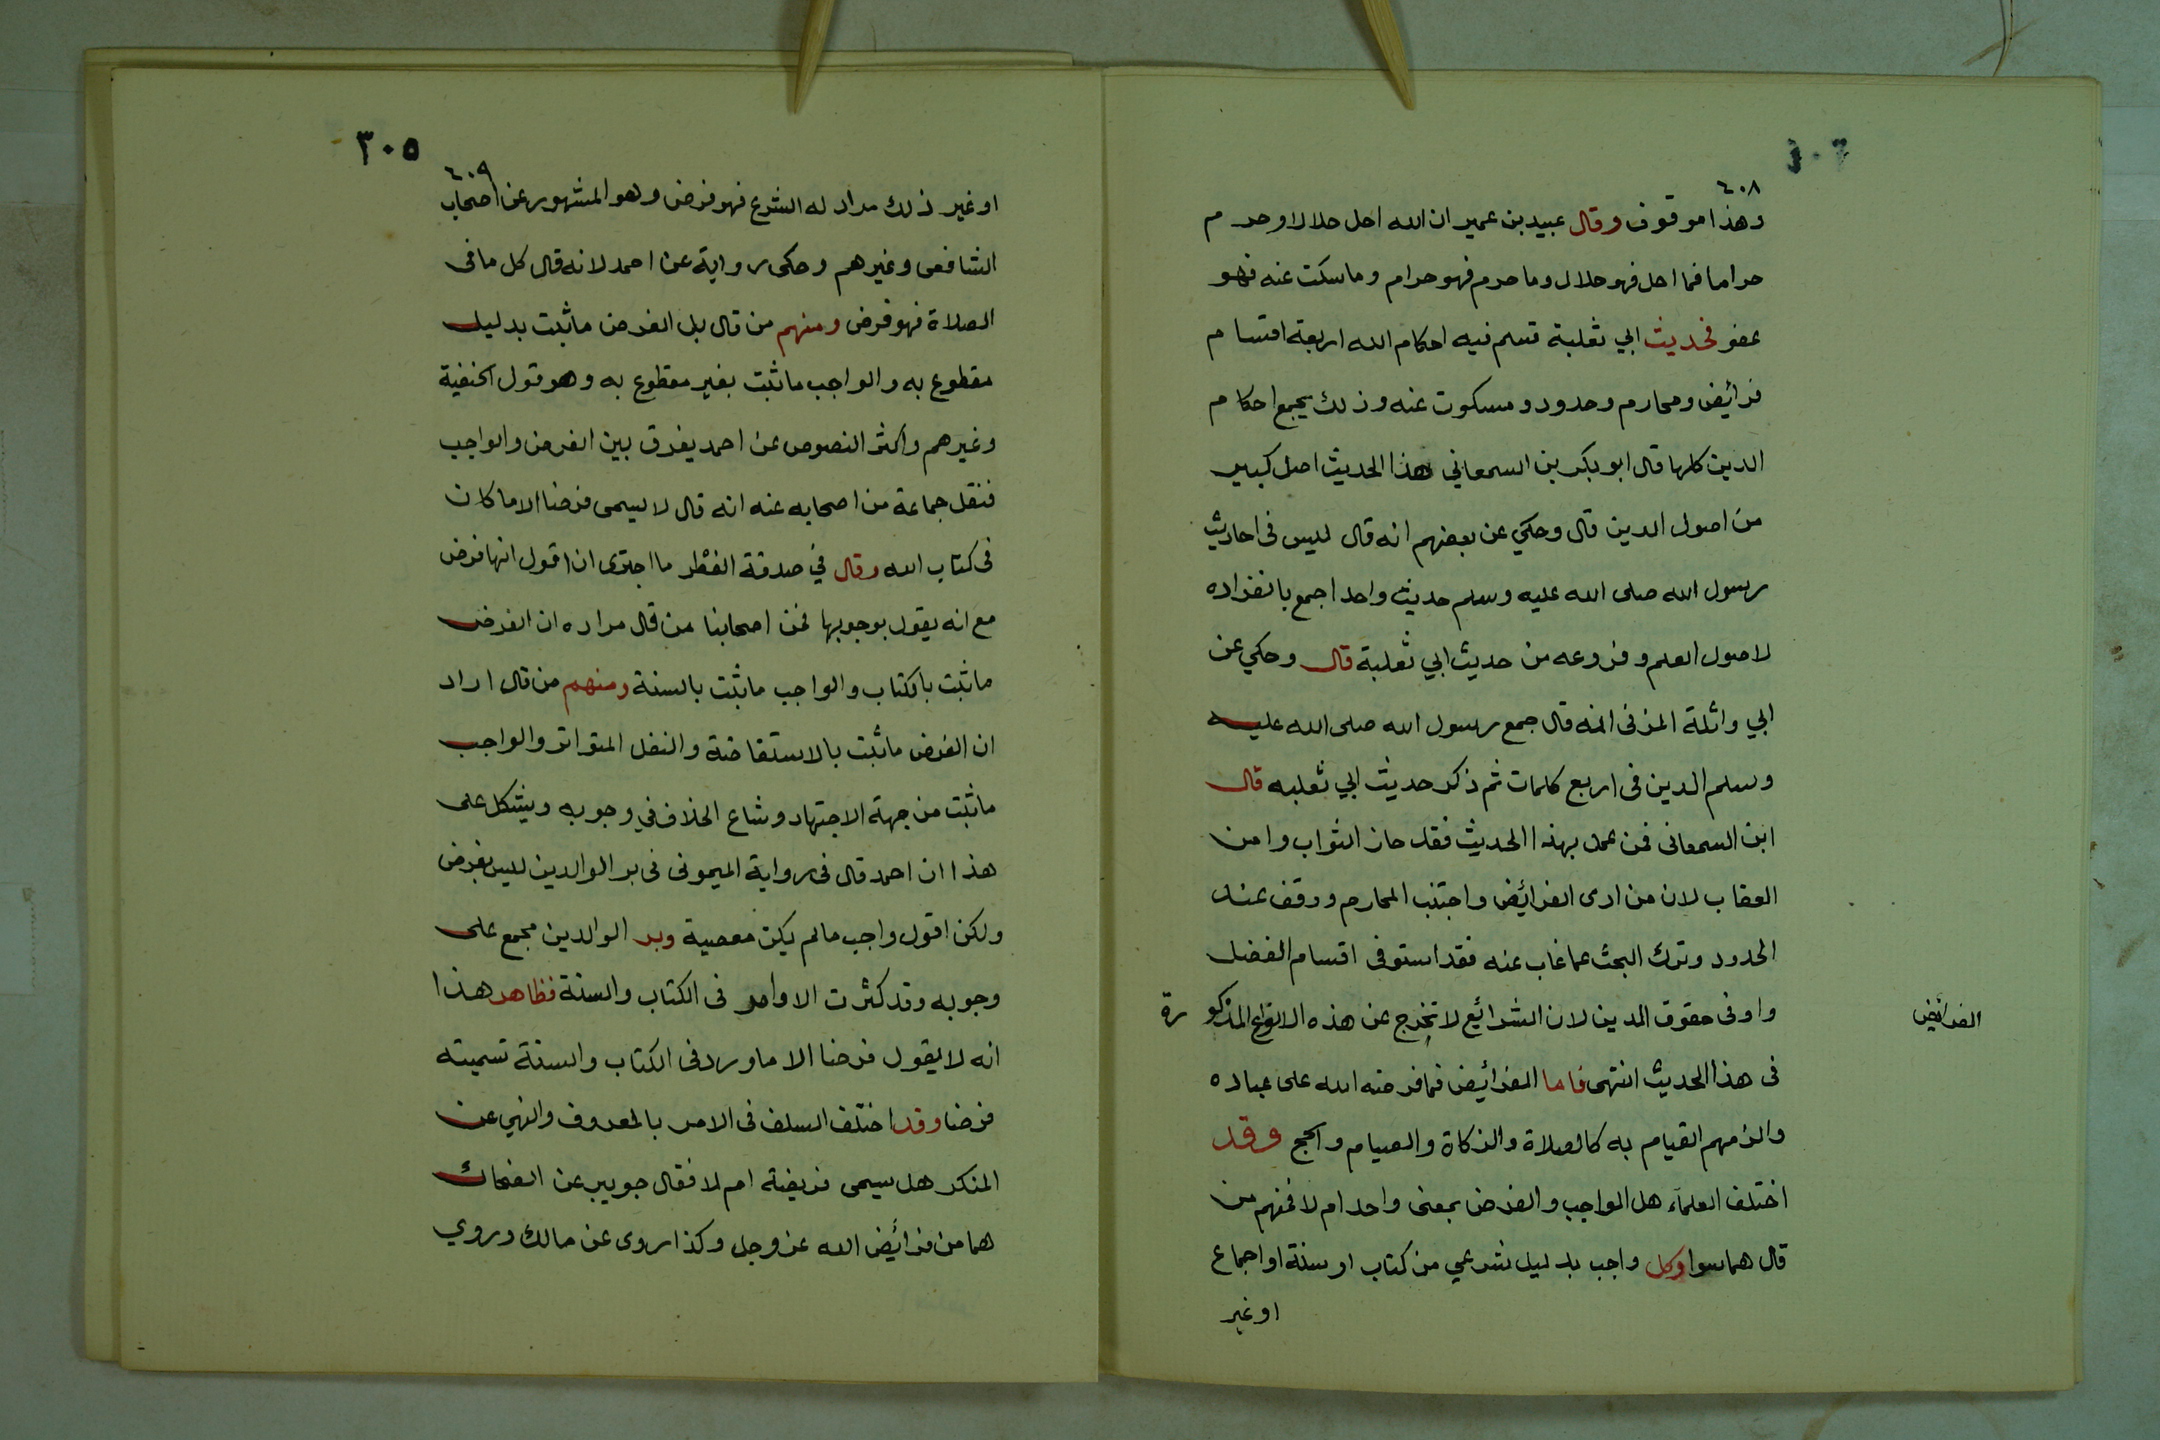 ٤٠٨
وهذا موقوف وقال عبيد بن عمير ان الله احل حلالا وحرم
حراما فما احل فهو حلال وما حرم فهو حرام وما سكت عنه فهو
عفو فحديث ابي ثعلبة قسم فيه احكام الله اربعة اقسام
فرائض ومحارم وحدود ومسكوت عنه وذلك يجمع احكام
الدين كلها قال ابو بكر بن السمعاني هذا الحديث اصل كبير
من اصول الدين قال وحكي عن بعضهم انه قال ليس في احاديث
رسول الله صلى الله عليه وسلم حديث واحد اجمع بانفراده
لاصول العلم وفروعه من حديث ابي ثعلبة قال وحكي عن
ابي واثلة المزني انه قال جمع رسول الله صلى الله عليه
وسلم الدين في اربع كلمات ثم ذكر حديث ابي ثعلبه قال
ابن السمعاني فمن عمل بهذا الحديث فقد حاز الثواب وامن
العقاب لان من ادى الفرائض واجتنب المحارم ووقف عند
الحدود وترك البحث عما غاب عنه فقد استوفى اقسام الفضل
واوفى حقوق الدين لان الشرائع لا تخرج عن هذه الانواع المذكورة
الفرائض
في هذا الحديث انتهى فاما الفرائض فما فرضه الله على عباده
والزمهم القيام به كالصلاة والزكاة والصيام والحج وقد
اختلف العلماء هل الواجب والفرض بمعنى واحد ام لا فمنهم من
قال هما سوا وكل واجب بدليل شرعي من كتاب او سنة او اجماع
او غير
٣٠٥
٤٠٩
او غير ذلك مراد له الشرع فهو فرض وهو المشهور عن اصحاب
الشافعى وغيرهم وحكى رواية عن احمد لانه قال كل ما في
الصلاة فهو فرض ومنهم من قال بل الفرض ما ثبت بدليل
مقطوع به والواجب ما ثبت بغير مقطوع به وهو قول الحنفية
وغيرهم واكثر النصوص عن احمد يفرق بين الفرض والواجب
فنقل جماعة من اصحابه عنه انه قال لا يسمى فرضا الا ما كان
في كتاب الله وقال في صدقة الفطر ما اجترى ان اقول انها فرض
مع انه يقول بوجوبها فمن اصحابنا من قال مراده ان الفرض
ما ثبت بالكتاب والواجب ما ثبت بالسنة ومنهم من قال اراد
ان الفرض ما ثبت بالاستفاضة والنقل المتواتر والواجب
ما ثبت من جهة الاجتهاد وشاع الخلاف في وجوبه ويشكل على
هذا ان احمد قال في رواية الميموني في بر الوالدين ليس بفرض
ولكن اقول واجب ما لم يكن معصية وبر الوالدين مجمع على
وجوبه وقد كثرت الاوامر في الكتاب والسنة فظاهر هذا
انه لا يقول فرضا الا ما ورد في الكتاب والسنة تسميته
فرضا وقد اختلف السلف في الامر بالمعروف والنهي عن
المنكر هل يسمى فريضة ام لا فقال جويبر عن الضحاك
هما من فرائض الله عز وجل وكذا روى عن مالك وروي